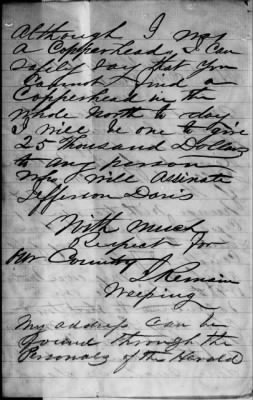 Although I was
A Copperhead I Can
safily say that you
Cannot find a
Copperhead in the
whole North to day
I will be one to give
25 thousand Dollars
to any person
who will Assinate
Jefferson Davis
With much
Respect for
our Country
I Remain
Weeping
My address can be
found through the
Personals of the Herald